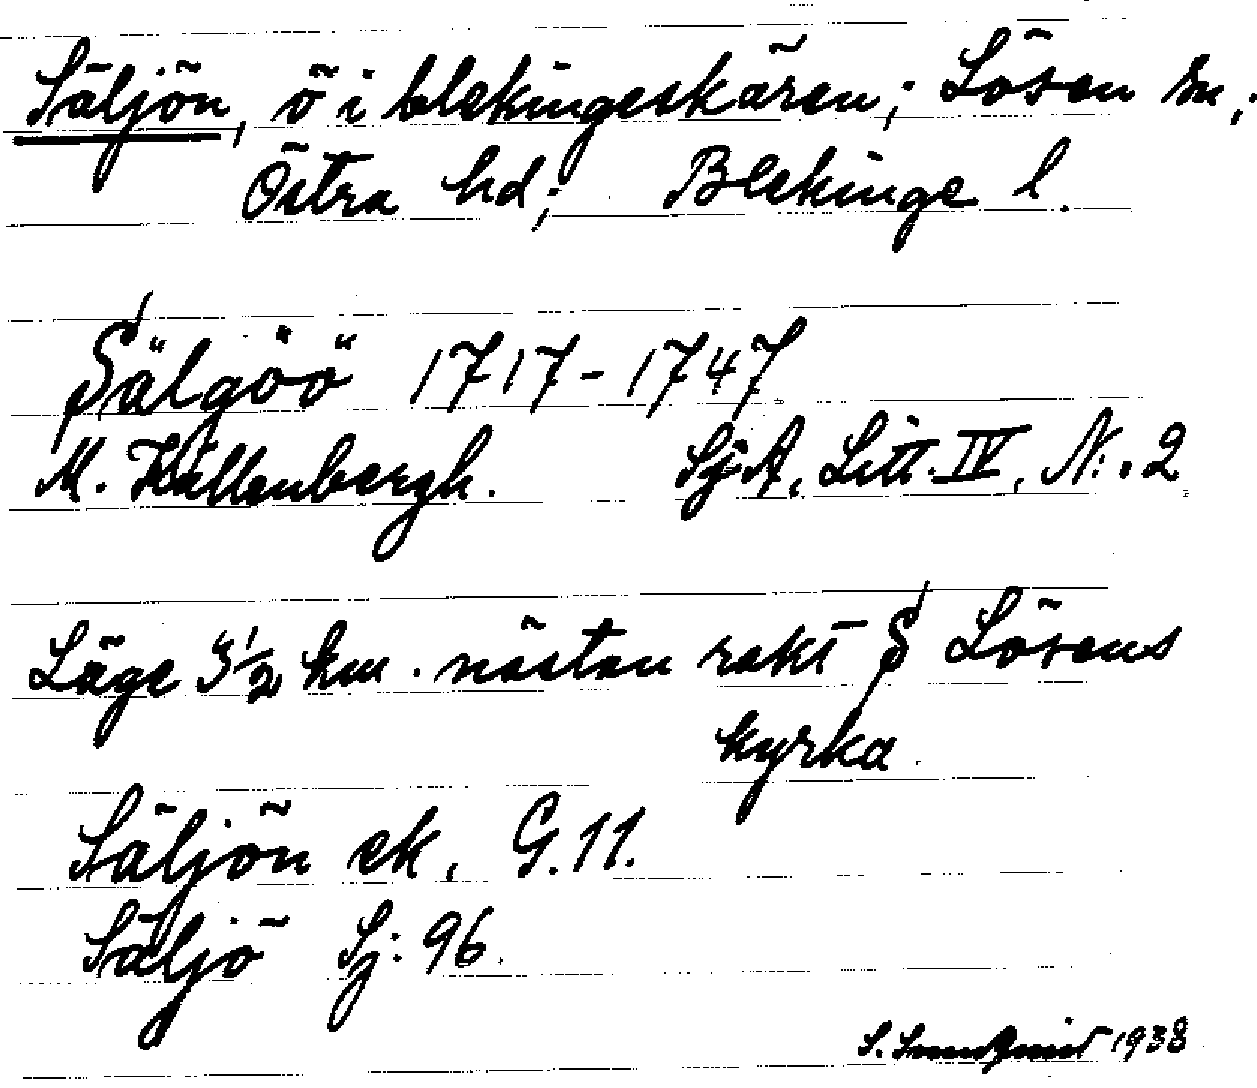 Säljön, ö i blekingeskären; Lösen sn,;
Östra hd; Blekinge l.
Sälgöö 1717-1747
M. Hällenbergh. Sj.A, Litt. IV, N:.2
Läge 3½ km. nästan rakt S Lösens
kyrka.
Säljön ek, G.11.
Säljö Sj: 96.
S. 1938